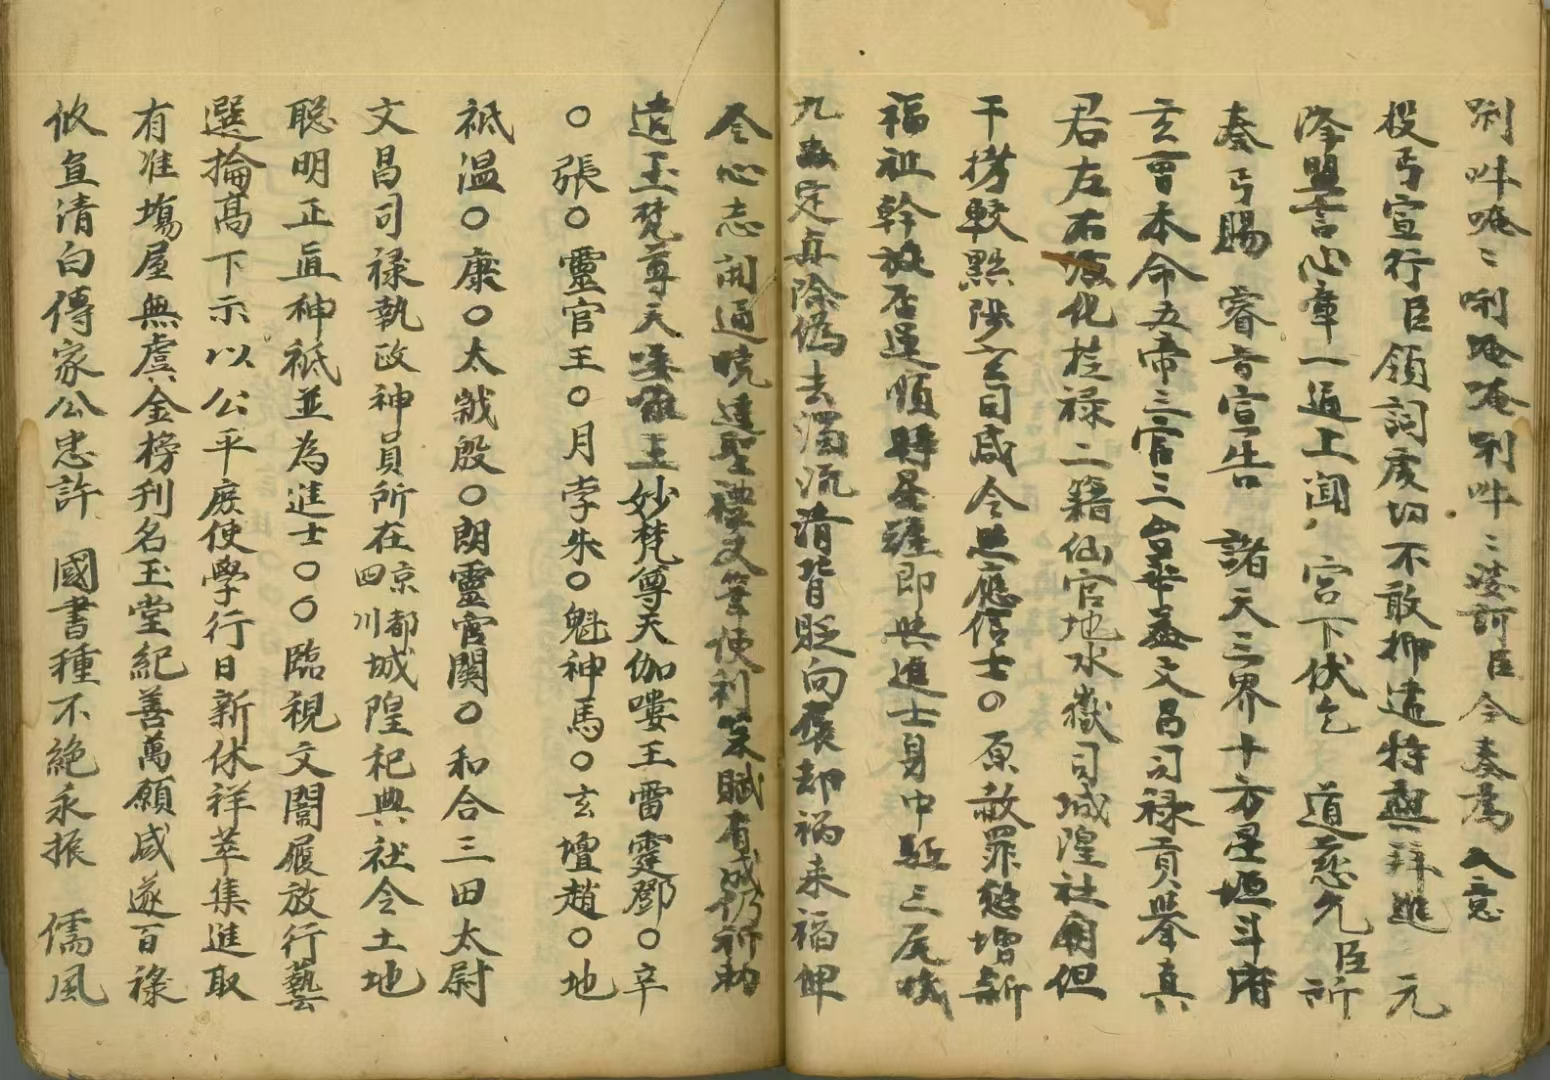 唎吽唵〻唎唵唵唎吽〻婆訶臣今奏為 入意
投丐宣行臣領詞虔切不敢抑遣特與拜進 元
降盟言心章一通上聞 宮下伏乞 道慈允臣所
奏丐賜 睿音宣告 諸天三界十方星垣斗府
玄曹本命五帝三官三台華蓋文昌司禄貢舉真
君左右 化桂禄二籍仙官地水嶽司城隍社廟但
干掌較黙陟玄司咸令照應信士〇原赦罪愆增新
福祖幹放否運順時星躔即與進士身中 三尸
九虫定真除偽去濁流清背貶向褒却禍来福俾
令心志開通曉達聖禮文筆使利策賦有成仍祈勅
遣玉梵尊天 王妙梵尊天伽嘍王雷霆鄧〇辛
〇張〇靈官王〇月孛朱〇魁神馬〇玄壇趙〇地
祇温〇康〇太歲殷〇朗靈官関〇和合三田太尉
文昌司禄執政神員所在京都四川城隍祀典社令土地
聡明正直神祇並為進士〇〇臨視文闈履放行藝
選掄髙下示以公平庶使學行日新休祥萃集進取
有准塲屋無虞金榜刋名玉堂紀善萬願咸遂百禄
攸宜清白傳家公忠許 國書種不絶永振 儒風